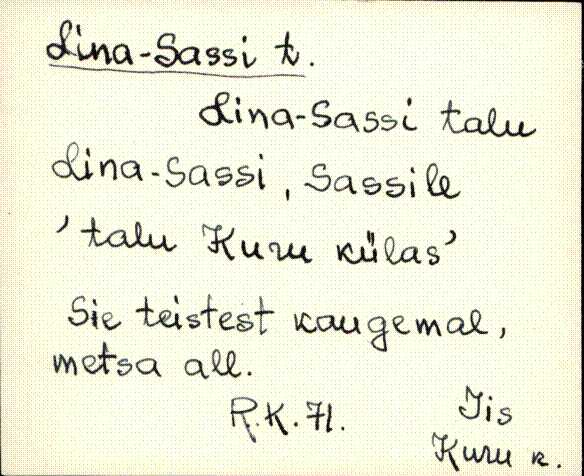 Lina-Sassi t.
Lina-Sassi talu
Lina-Sassi, Sassile
'talu Kuru külas'
Sie teistest kaugemal,
metsa all.
R.K.71.
Iis
Kuru k.